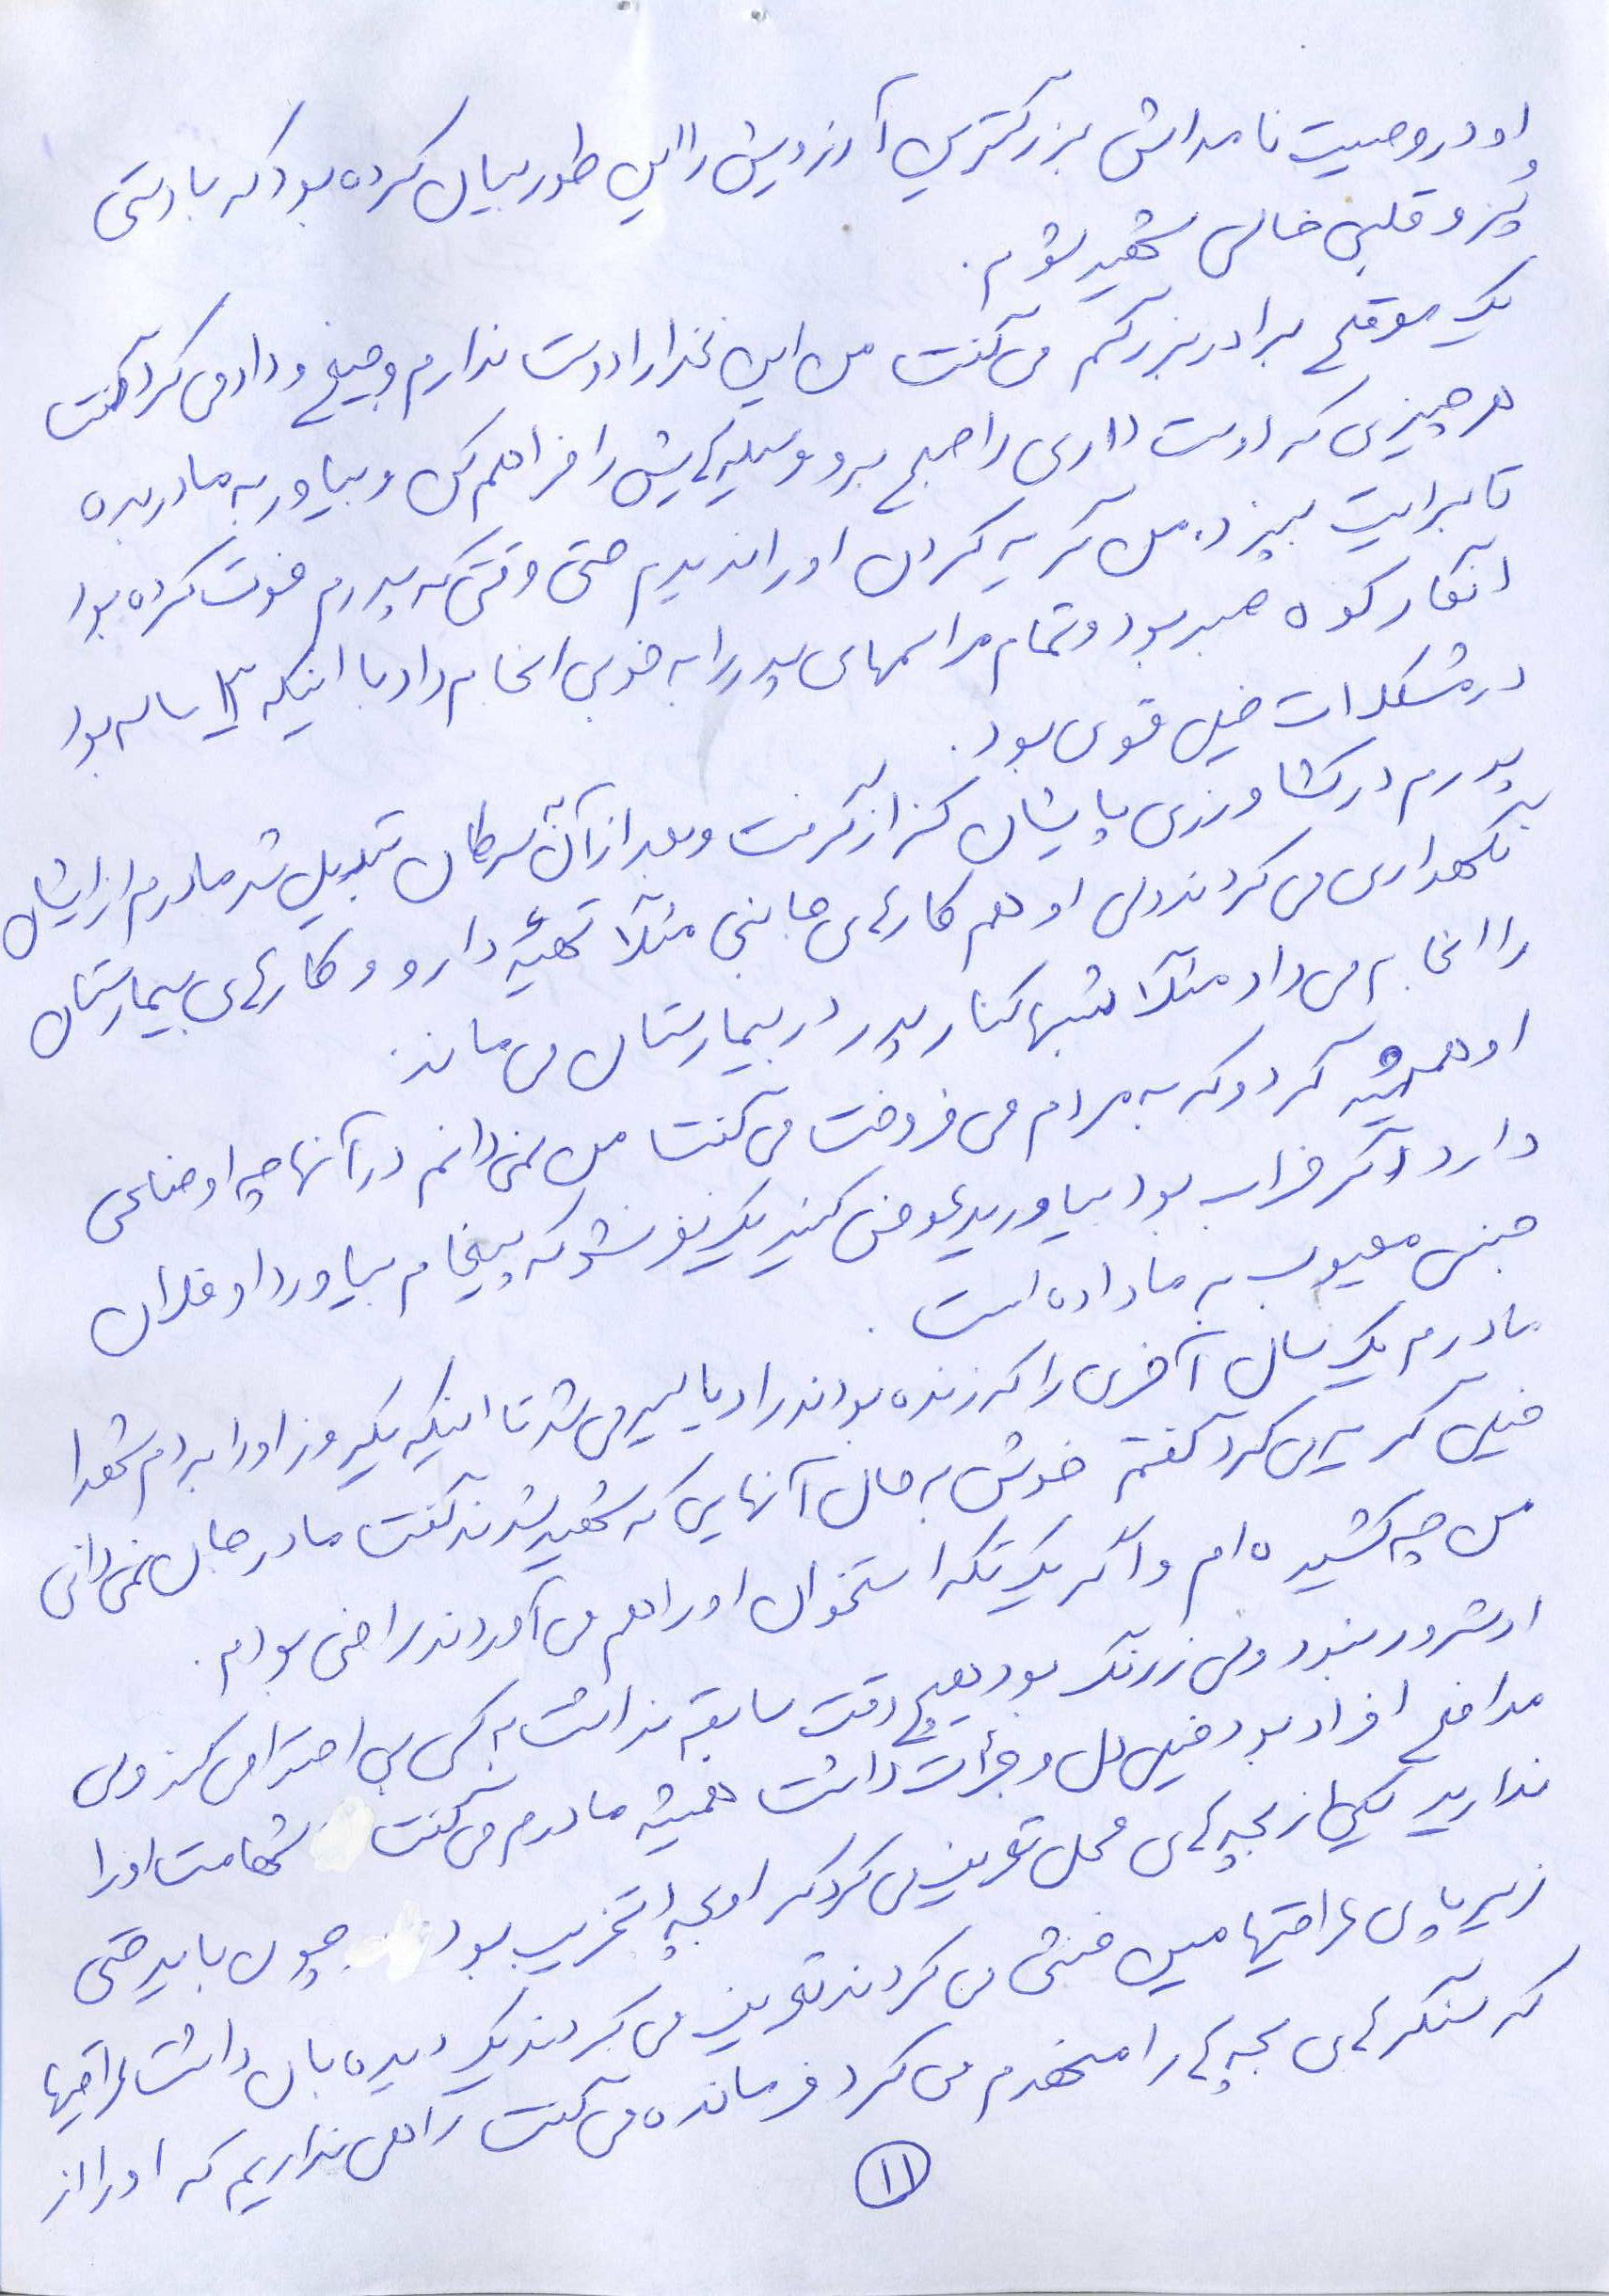 او در وصیت نامه اش بزرگترین آرزویش را این طور بیان کرده بود که با دستی
پُر و قلبی خالص شهید شوم.
یک موقع برادر بزرگم می گفت من این غذا را دوست ندارم و جیغ و داد می کرد گفت
هر چیزی که دوست داری را صبح برو وسیله هایش را فراهم کن و بیاور به مادر بده
تا برایت بپزد. من گریه کردن او را ندیدم حتی وقتی که پدرم فوت کرده بود
انگار کوه صبر بود و تمام مراسمهای پدر را به خوبی انجام داد با اینکه ساله بود
در مشکلات خیلی قوی بود.
پدرم در کشاورزی پایشان کزاز گرفت و بعد از آن به سرطان تبدیل شد مادرم از ایشان
نگهداری می کردند ولی او هم کارهای جانبی مثلاً تهیّه دارو و کارهای بیمارستان
را انجام می داد مثلاً شبها کنار پدر در بیمارستان می ماند.
او همیشه گردو که به مردم می فروخت می گفت من نمی دانم در آنها چه اوضاعی
دارد اگر خراب بود بیاورید عوض کنید یک نفر نشو که پیغام بیاورد او فلان
جنس معیوب به ما داده است.
مادرم یک سال آخری را که زنده بودند می شد تا اینکه یکروز او را بردم شهدا
خیلی گریه می کرد گفتم خوش به حال آنهایی که شهید شدند گفت مادر جان نمی دانی
من چه کشیده ام و اگر یک تکه استخوان او را هم می آوردند راضی بودم.
او شرور نبود ولی زرنگ بود هیچ وقت سابقه نداشت به کسی بی احترامی کند ولی
مدافع افراد بود خیلی دل و جرأت داشت همیشه مادرم می گفت شهامت او را
ندارید یکی از بچه های محل تعریف می کرد که او بچه تخریب بود چون باید حتی
زیر پای عراقیها مین خنثی می کردند تعریف می کردند یک دیده بان داشت عراقیها
که سنگرهای بچه ها را منهدم می کرد فرمانده می گفت راهی نداریم که او را از
۱۱